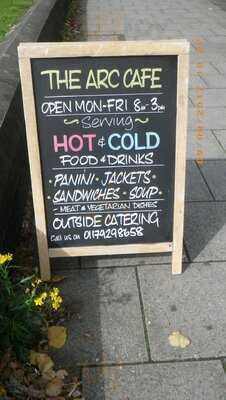 THE ARC CAFE
OPEN MON-FRI 8am-3pm
~ Serving ~
HOT & COLD
FOOD & DRINKS
• PANINI • JACKETS •
SANDWICHES • SOUP •
- MEAT & VEGETARIAN DISHES
OUTSIDE CATERING
CALL US ON 01179298658